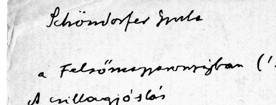 Schöndorfer Gyula
a Felsőmagyarországban (1
A csillagjóslás